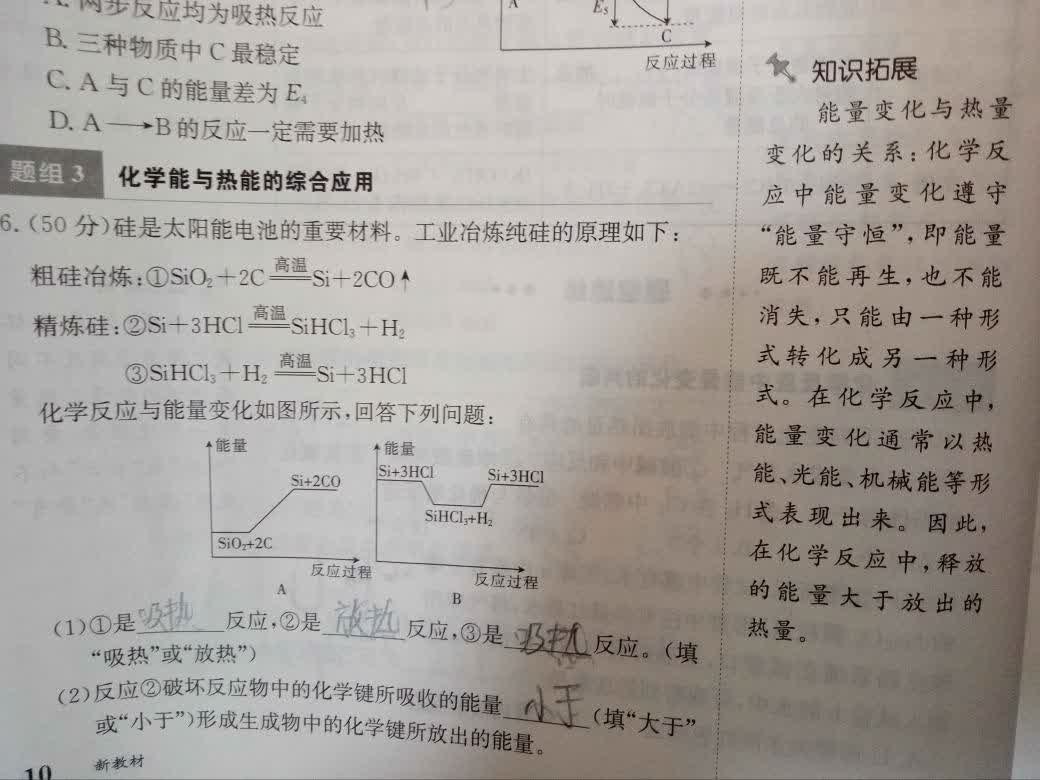 A. 两步反应均为吸热反应
B. 三种物质中 C 最稳定
C. A 与 C 的能量差为 E₄
D. A⟶B 的反应一定需要加热
A
E₅
C
反应过程
题组 3 化学能与热能的综合应用
6. (50 分)硅是太阳能电池的重要材料。工业冶炼纯硅的原理如下:
粗硅冶炼:①SiO₂+2C 高温══ Si+2CO↑
精炼硅:②Si+3HCl 高温══ SiHCl₃+H₂
③SiHCl₃+H₂ 高温══ Si+3HCl
化学反应与能量变化如图所示,回答下列问题:
能量
Si+2CO
SiO₂+2C
反应过程
A
能量
Si+3HCl
Si+3HCl
SiHCl₃+H₂
反应过程
B
(1)①是 吸热 反应,②是 放热 反应,③是 吸热 反应。(填
“吸热”或“放热”)
(2)反应②破坏反应物中的化学键所吸收的能量 小于 (填“大于”
或“小于”)形成生成物中的化学键所放出的能量。
10 新教材
知识拓展
能量变化与热量
变化的关系:化学反
应中能量变化遵守
“能量守恒”,即能量
既不能再生,也不能
消失,只能由一种形
式转化成另一种形
式。在化学反应中,
能量变化通常以热
能、光能、机械能等形
式表现出来。因此,
在化学反应中,释放
的能量大于放出的
热量。